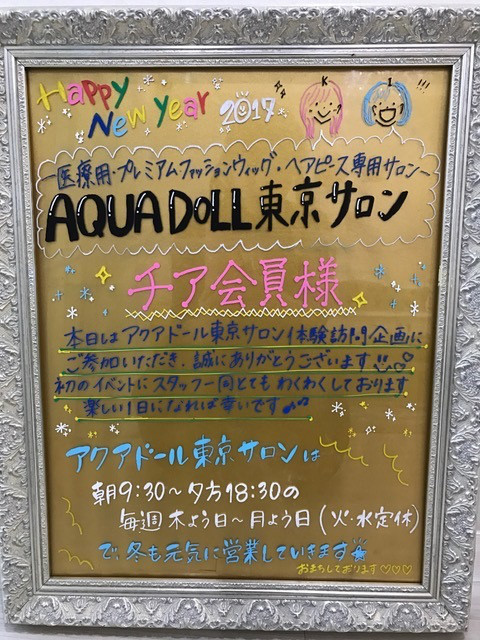 Happy
New Year 2017
K I !!!
医療用・プレミアムファッションウィッグ・ヘアピース専用サロン
AQUA DOLL東京サロン
チア会員様
本日はアクアドール東京サロン体験訪問企画に
ご参加いただき、誠にありがとうございます
初のイベントにスタッフ一同とてもわくわくしております
楽しい1日になれば幸いです♪
アクアドール東京サロンは
朝9:30〜夕方18:30の
毎週木よう日〜月よう日(火・水定休)
で、冬も元気に営業していきます
おまちしております♡♡♡